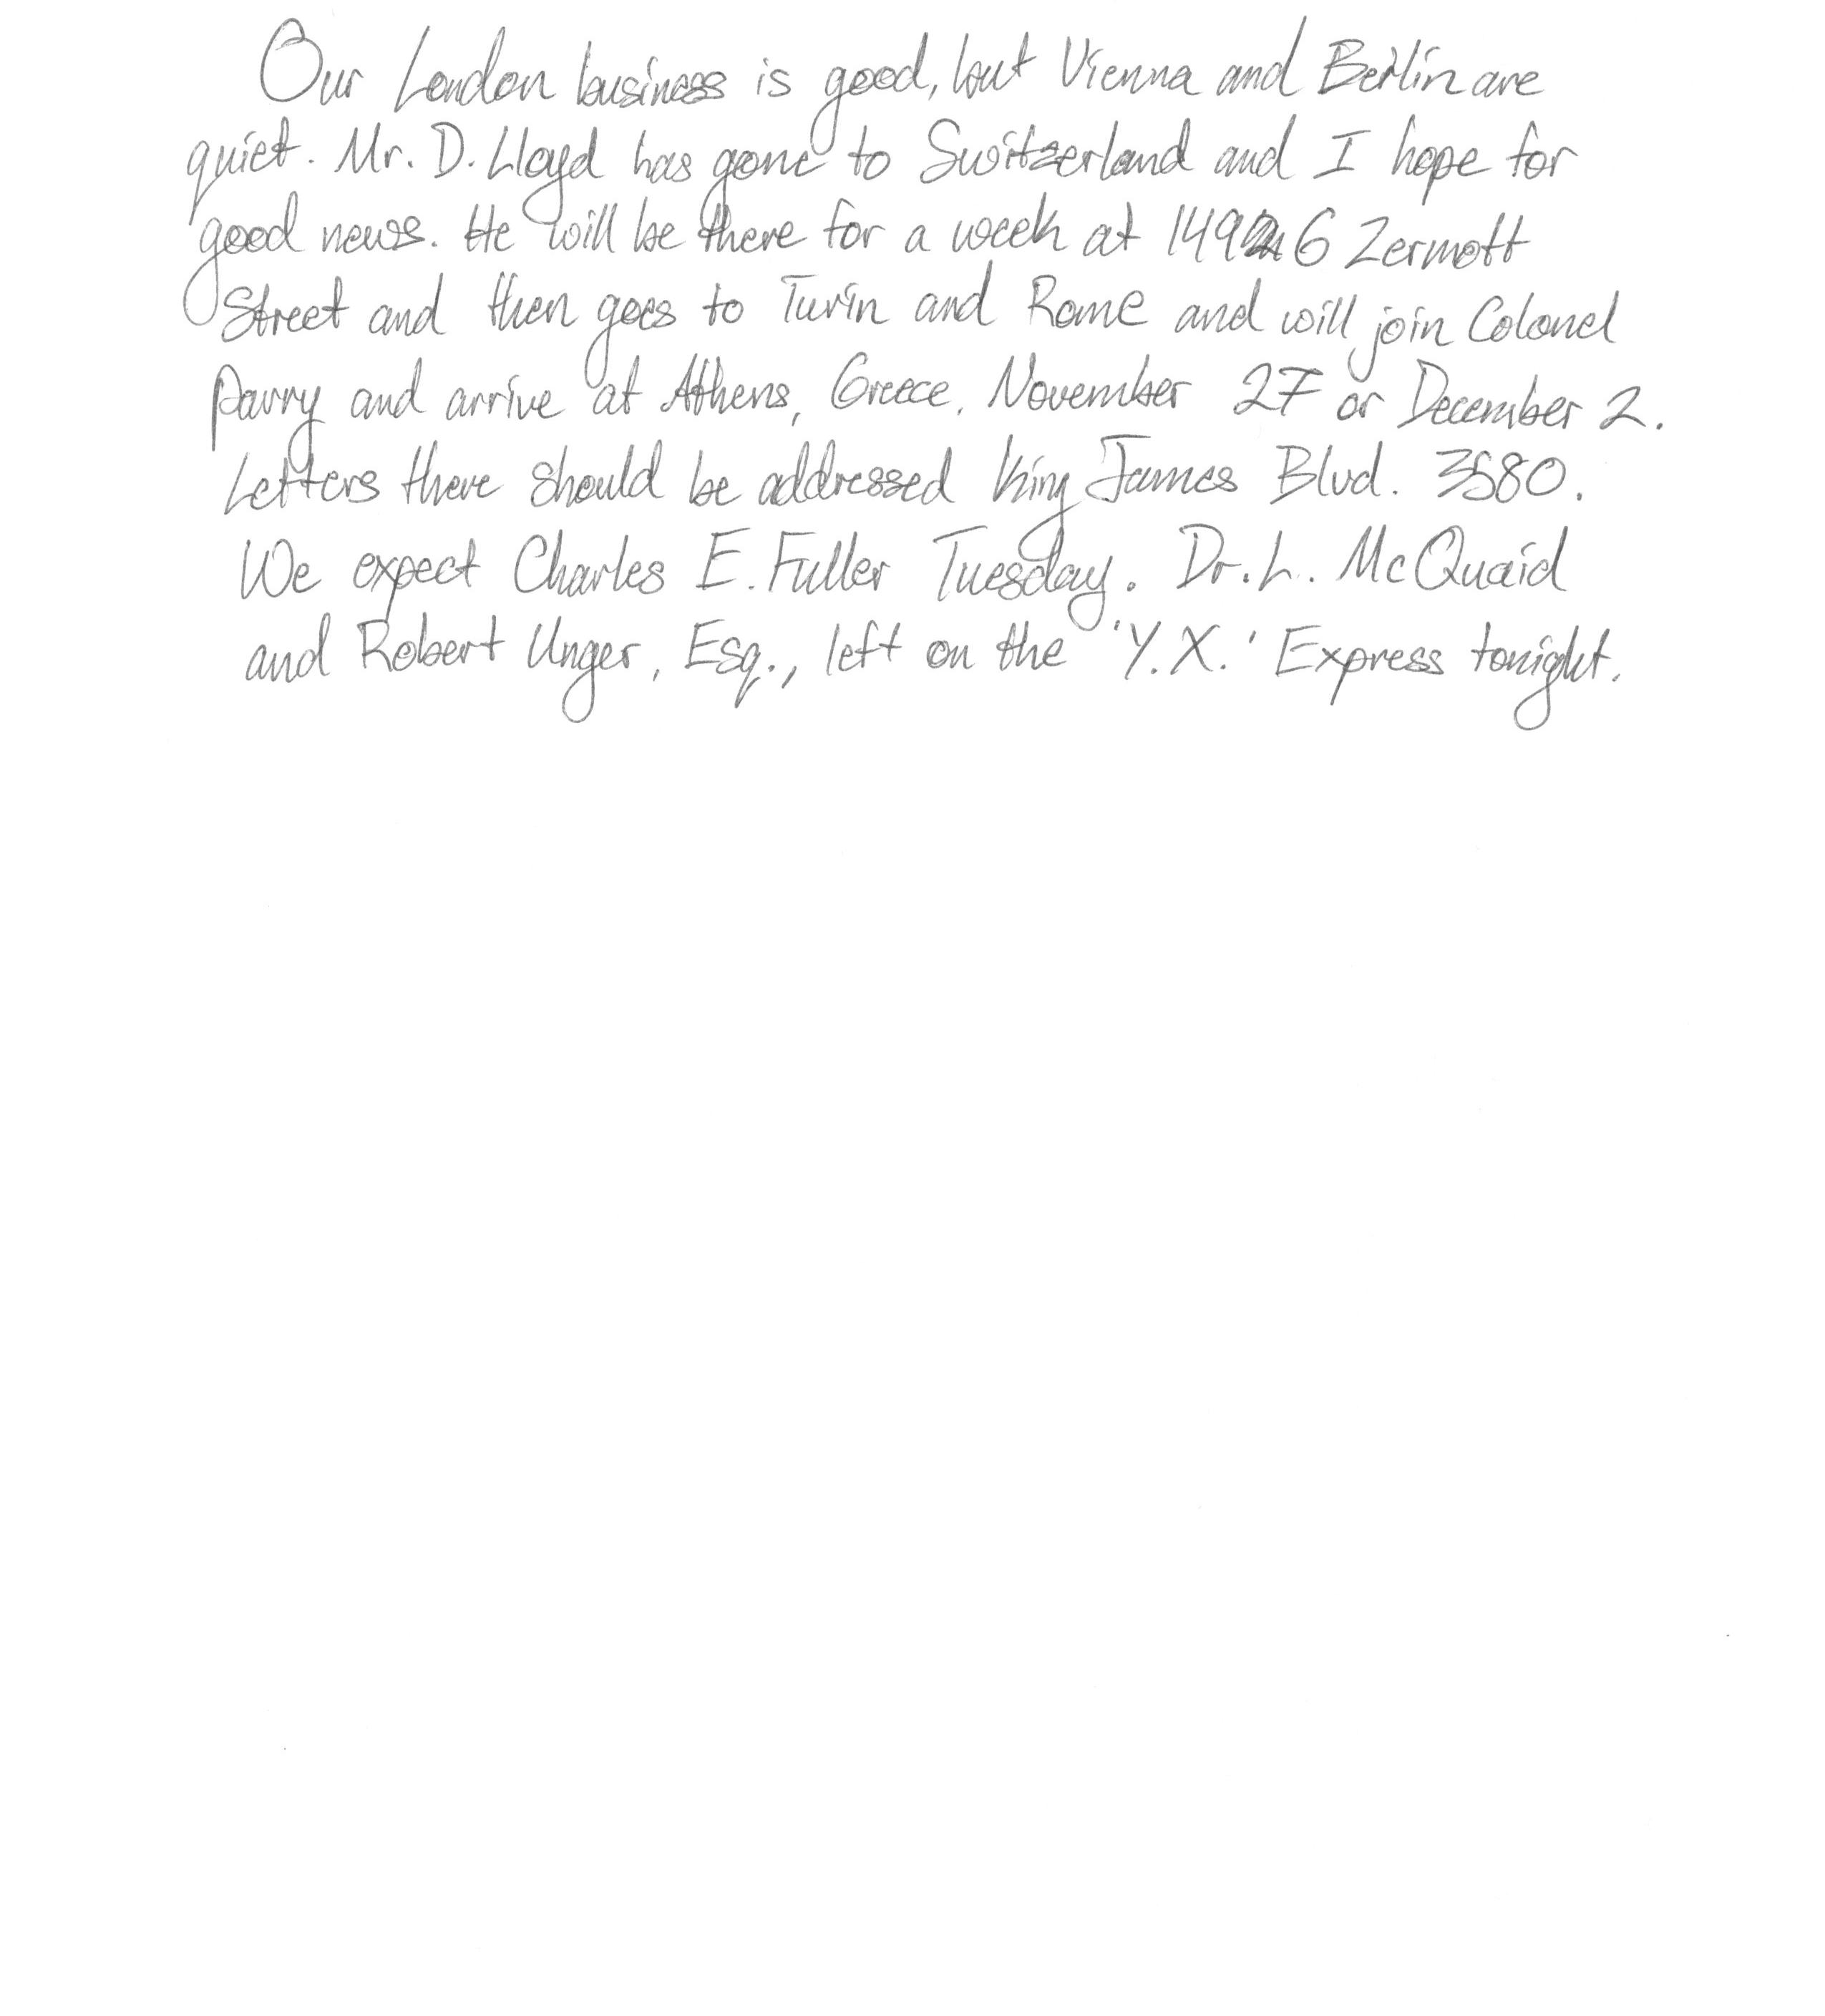 Our London business is good, but Vienna and Berlin are
quiet. Mr. D. Lloyd has gone to Switzerland and I hope for
good news. He will be there for a week at Zermott
Street and then goes to Turin and Rome and will join Colonel
Parry and arrive at Athens, Greece, November 27 or December 2.
Letters there should be addressed King James Blvd. 3580.
We expect Charles E. Fuller Tuesday. Dr. L. McQuaid
and Robert Unger, Esq., left on the 'Y.X.' Express tonight.